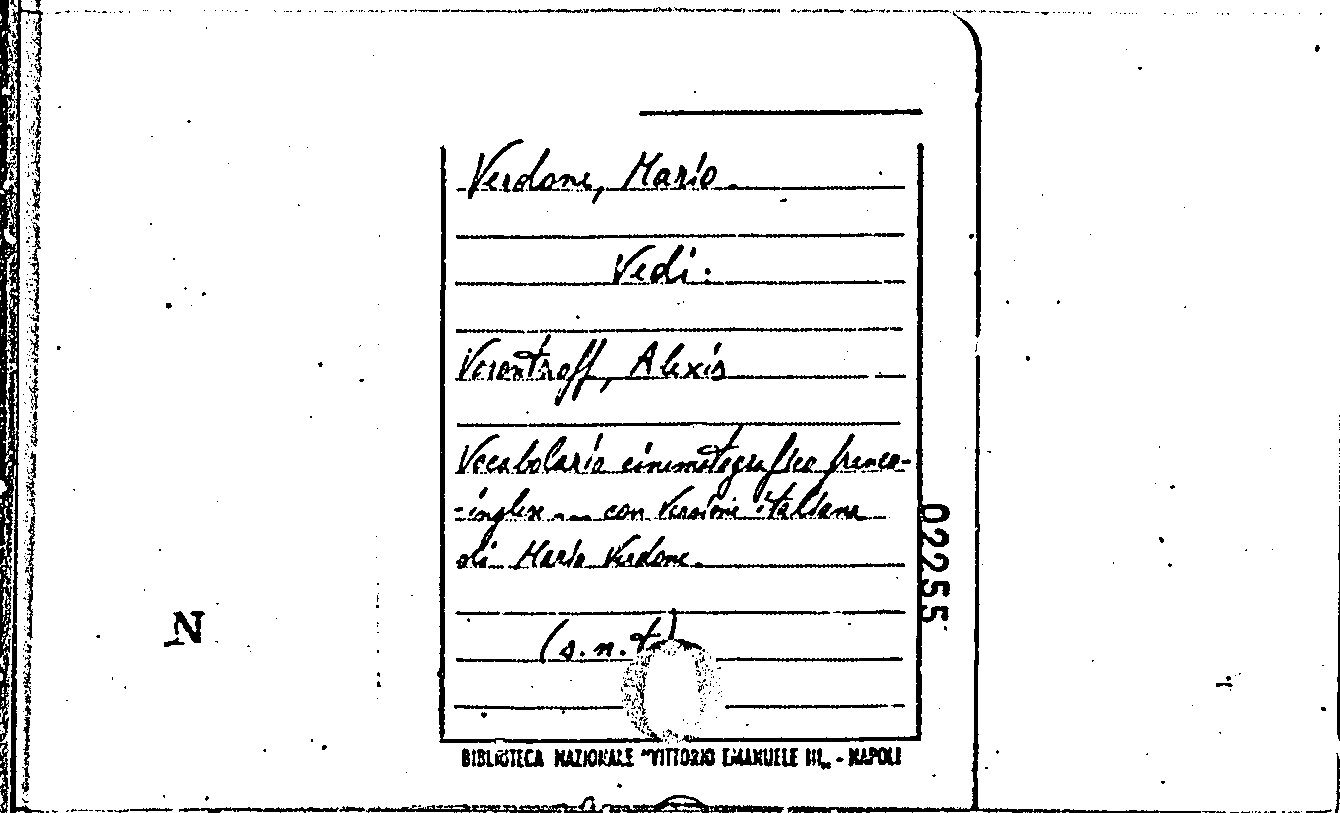 Verdone, Mario.
Vedi:
Verontroff, Alexis
Vocabolario cinematografico franco-
-inglese ... con versione italiana
di Mario Verdone.
(s.n.t)
02255
N
BIBLIOTECA NAZIONALE "VITTORIO EMANUELE III„ - NAPOLI